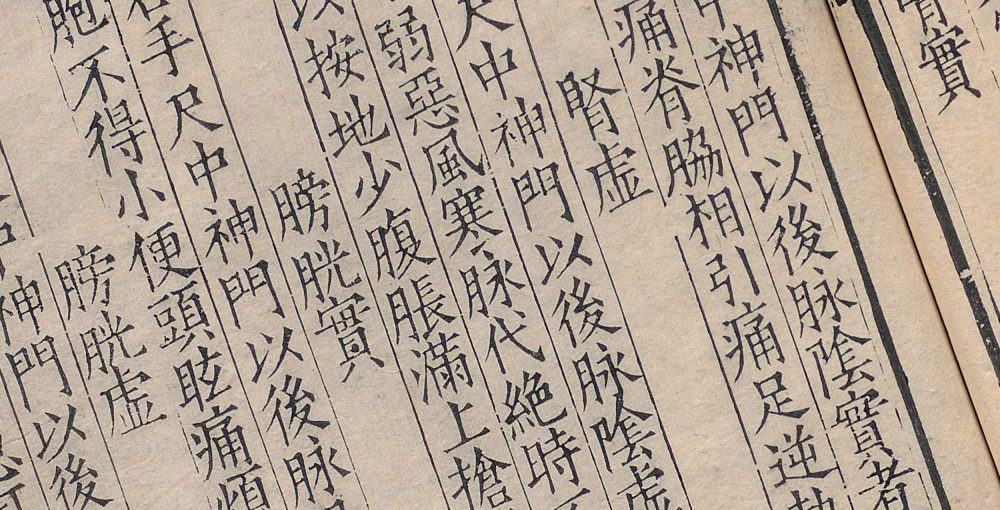 實
中神門以後脉陰實者
痛脊脇相引痛足逆
腎虚
尺中神門以後脉陰虚
弱惡風寒脉代絶時
以按地少腹脹滿上搶
膀胱實
右手尺中神門以後脉
胞不得小便頭眩痛煩
膀胱虚
神門以後